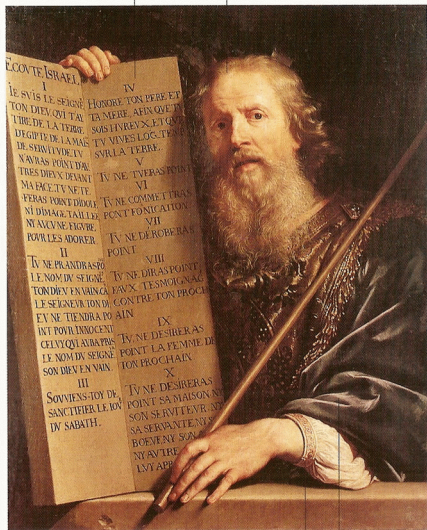 ECOVTE ISRAEL,
I
IE SVIS LE SEIGNE
TON DIEV, QVI T'AI
TIRE DE LA TERRE
D'EGIPTE DE LA MAI
DE SERVITVDE. TV
N'AVRAS POINT D'AV
TRES DIEVX DEVANT
MA FACE. TV NE TE
FERAS POINT D'IDOLE
NI D'IMAGE TAILLEE
NY AVCVNE FIGVRE
POVR LES ADORER
II
TV NE PRANDRAS PO
LE NOM DV SEIGNE
TON DIEV EN VAIN. CA
LE SEIGNEVR TON DI
EV NE TIENDRA PO
INT POVR INNOCENT
CELVY QVI AVRA PRIS
LE NOM DV SEIGNE
SON DIEV EN VAIN.
III
SOVVIENS-TOY DE
SANCTIFIER LE IOV
DV SABATH.
IV
HONORE TON PERE ET
TA MERE, AFIN QVE TV
SOIS HVREVX, ET QVE
TV VIVES LOG-TENS
SVR LA TERRE.
V
TV NE TVERAS POINT
VI
TV NE COMMETTRAS
POINT FORNICATION
VII
TV NE DÉROBERAS
POINT
VIII
TV NE DIRAS POINT
FAVX TESMOIGNAG
CONTRE TON PROCH
AIN
IX
TV NE DESIRERAS
POINT LA FEMME DE
TON PROCHAIN
X
TV NE DESIRERAS
POINT SA MAISON N
SON SERVITEVR, NY
SA SERVANTE, NY S
BOEVF, NY SON
NY AVTRE
LVY APP